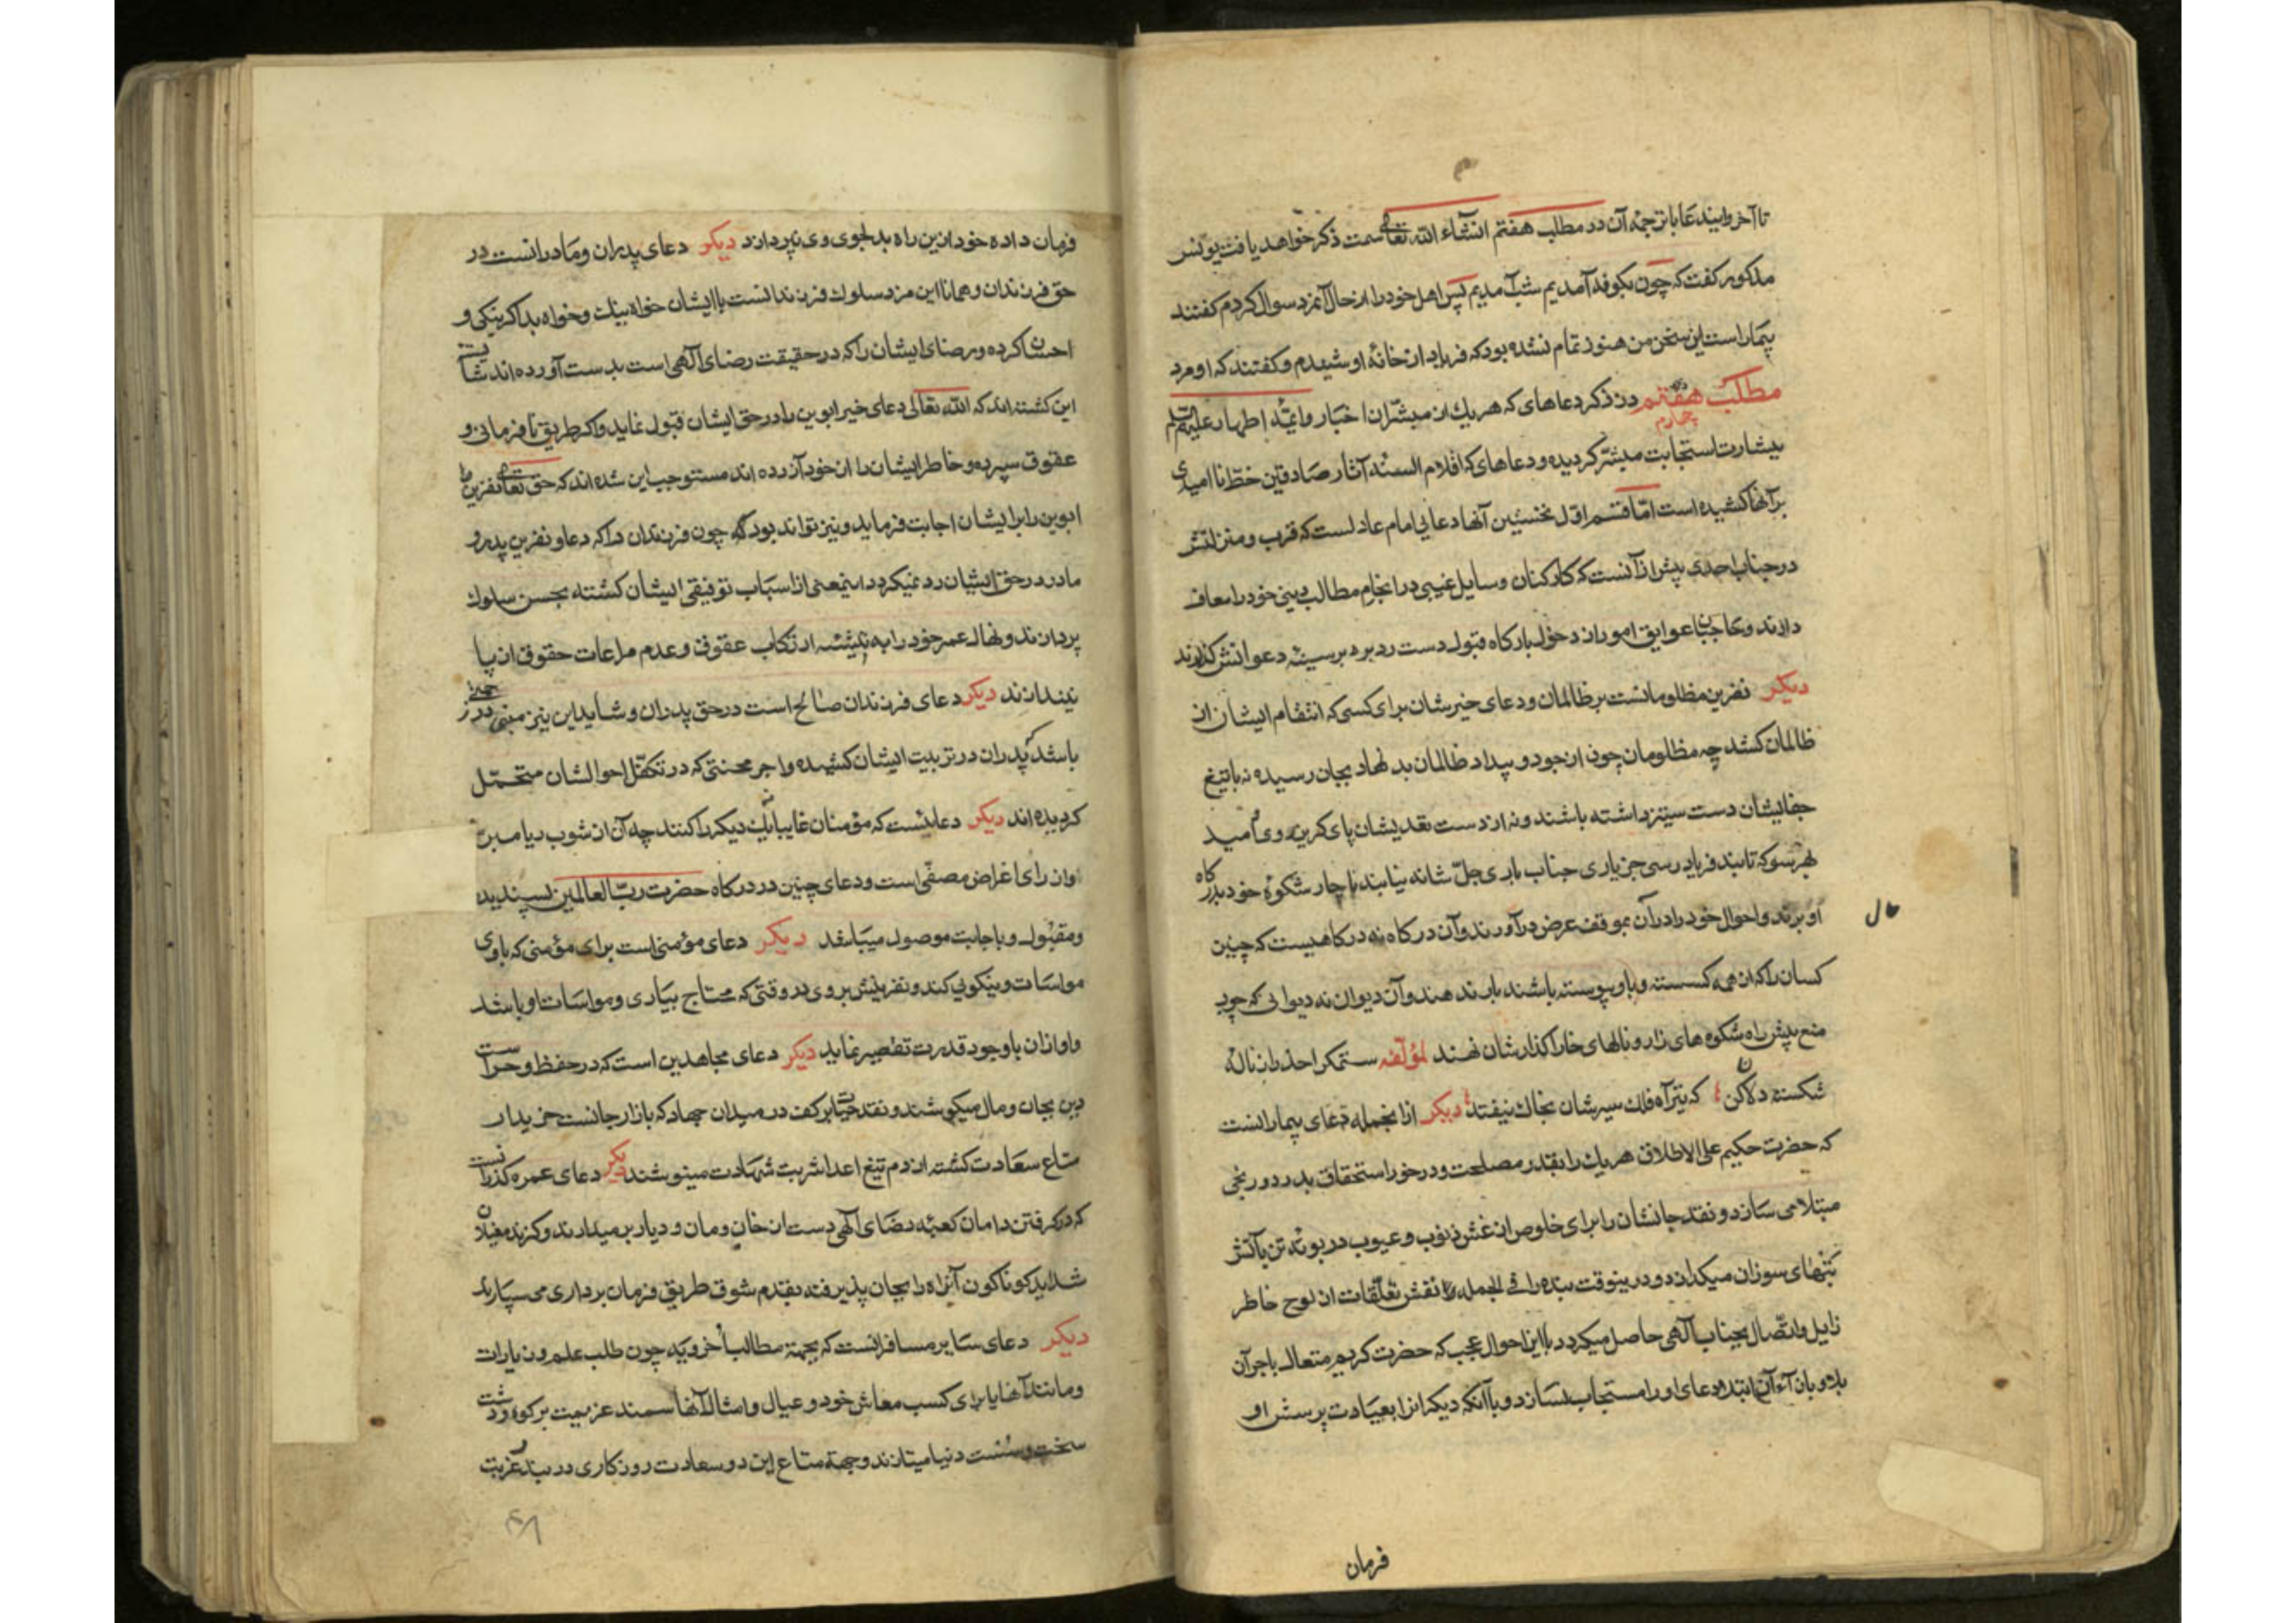 تا آخر و این دعا با ترجمه آن در مطلب هفتم انشاء الله تعالی سمت ذکر خواهد یافت یونس
مذکور گفت که چون بکوفه آمدیم شب آمدیم پس اهل خود را از حال آنمرد سوال کردم گفتند
بیمار است این سخن من هنوز تمام نشده بود که فریاد از خانۀ او شنیدم و گفتند که او مرد
مطلب هفتم چهارم در ذکر دعاهای که هر یک از مبشّران اخبار و ائمّه اطهار علیهم السلام
ببشارت استجابت مبشّر گردیده و دعاهای که اقلام السنه آثار صادقین خطّ ناامیدی
بر آنها کشیده است امّا قسم اوّل نخستین آنها دعای امام عادلست که قرب و منزلتش
در جناب احدی بیش از آنست که کارکنان وسایل غیبی در انجام مطالب دینی خود را معاف
دارند و حاجبان عوایق امور از دخول بارگاه قبول دست رد بر سینۀ دعوانش گذارند
دیکر نفرین مظلومانست بر ظالمان و دعای خیرشان برای کسی که انتقام ایشان از
ظالمان کشد چه مظلومان چون از جور و بیداد ظالمان بد نهاد بجان رسیده نه با تیغ
جفایشان دست ستیز داشته باشند و نه از دست تعدیشان پای گریز روی امید
بهر سو که تابند فریاد رسی جز یاری جناب باری جلّ شانه نیابند ناچار شکوۀ خود بدرگاه
او برند و احوال خود را در آن موقف عرض درآورند و آن درگاه نه درگاهیست که چنین
کسان را که از همه گسسته و باو پیوسته باشند بار ندهند و آن دیوان نه دیوانی که چوب
منع پیش راه شکوه های زار و نالهای خاراگذارشان نهند لمؤلّفه ستمگرا حذر از نالۀ
شکسته دلان کن که تیر آه فلک سیرشان بخاک نیفتد دیکر از انجمله دعای بیمارانست
که حضرت حکیم علی الاطلاق هر یک را بقدر مصلحت و در خور استحقاق بدرد و رنجی
مبتلا می سازد و نقد جانشان را برای خلوص از غش ذنوب و عیوب در بوتۀ تن بآتش
تبهای سوزان میگدازد و درینوقت بنده را فی الجمله نقش تعلّقات از لوح خاطر
زایل و اتّصال بجناب آلهی حاصل میگردد با این احوال عجب که حضرت کریم متعال باجر آن
بلا و بازاء آن ابتلا دعای او را مستجاب نسازد و با آنکه دیکرانرا بعیادت پرسش او
فرمان
فرمان داده خود ازین راه بدلجوی وی نپردازد دیکر دعای پدران و مادرانست در
حق فرزندان و همانا این مزد سلوک فرزندانست با ایشان خواه بنیک و خواه بد اکر نیکی و
احسان کرده و رضای ایشان را که در حقیقت رضای آلهی است بدست آورده اند شایستۀ
این کشته اند که الله تعالی دعای خیر ابوین را در حق ایشان قبول نماید و اکر طریق نافرمانی و
عقوق سپرده و خاطر ایشان را از خود آزرده اند مستوجب این شده اند که حق تعالی نفرین
ابوین را بر ایشان اجابت فرماید و نیز تواند بود که چون فرزندان دانند که دعا و نفرین پدر و
مادر در حق ایشان رد نمیکردد اینمعنی از اسباب توفیق ایشان کشته بحسن سلوک
پردازند و نهال عمر خود را به تیشه ارتکاب عقوق و عدم مراعات حقوق از پا
نیندازند دیکر دعای فرزندان صالح است در حق پدران و شاید این نیز مبنی در
باشد که پدران در تربیت ایشان کشیده و اجر محنتی که در تکفّل احوالشان متحمّل
کردیده اند دیکر دعائیست که مؤمنان غایبانه یک دیکر را کنند چه آن از شوب ریا مبرّ
او از رای اغراض مصفّی است و دعای چنین در درکاه حضرت ربّ العالمین پسندیده
و مقبول و باجابت موصول میباشد دیکر دعای مؤمنی است برای مؤمنی که با وی
مواسات و نیکوئی کند و نفرینش بر وی در وقتی که محتاج بیاری و مواسات او باشد
و او از آن با وجود قدرت تقصیر نماید دیکر دعای مجاهدین است که در حفظ و حراست
دین بجان و مال میکوشند و نقد حیات بر کف در میدان جهاد که بازار جانست خریدار
متاع سعادت کشته از دم تیغ اعدا شربت شهادت مینوشند دیکر دعای عمره کذارانست
که در کرفتن دامان کعبۀ رضای آلهی دست از خان و مان و دیار بر میدارند و کزند مغیلان
شداید کوناکون آنراه را بجان پذیرفته بقدم شوق طریق فرمان برداری می سپارند
دیکر دعای سایر مسافرانست که بجهة مطالب اخرویّه چون طلب علم و زیارات
و مانند آنها یا برای کسب معاش خود و عیال و امثال آنها سمند عزیمت بر کوه و دشت
سخت و سست دنیا میتازند و جهة متاع این دو سعادت روزکاری در بند غربت